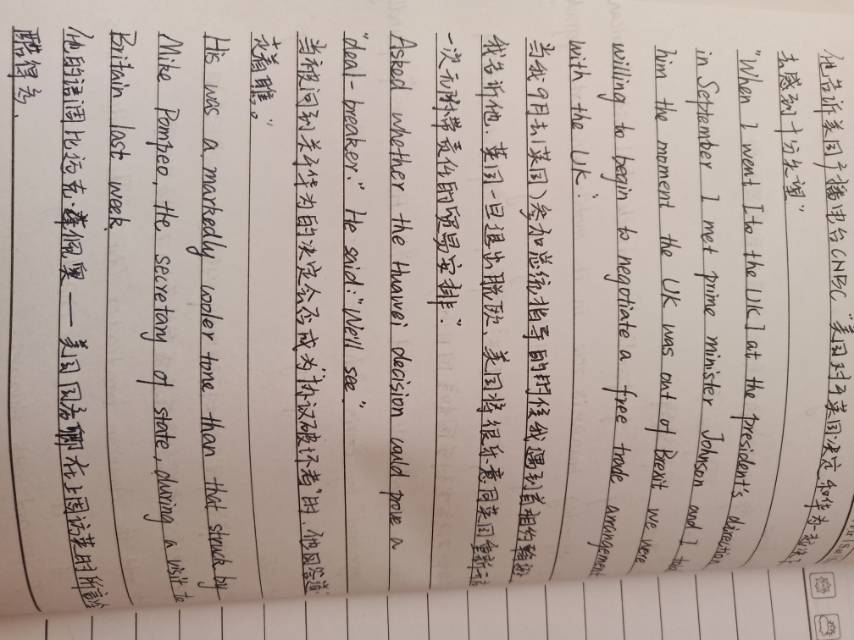 他告诉美国广播电台CNBC“美国对于英国决定和华为
去感到十分失望”
"When I went [to the UK] at the president's direction
in September I met prime minister Johnson and I
him the moment the UK was out of Brexit we were
willing to begin to negotiate a free trade arrangement
with the UK.
当我9月去(英国)参加总统指导的时候我遇到首相约翰逊
我告诉他.英国一旦退出脱欧.美国将很乐意同英国重新
一次元附带责任的贸易安排."
Asked whether the Huawei decision could prove a
"deal-breaker." He said: "We'll see."
当被问到关于华为的决定会否成为“协议破坏者”时.他回答道
“走着瞧。”
His was a markedly cooler tone than that struck by
Mike Pompeo, the secretary of state, during a visit to
Britain last week.
他的语调比迈克.蓬佩奥——美国国务卿在上周访英时所
酷得多.